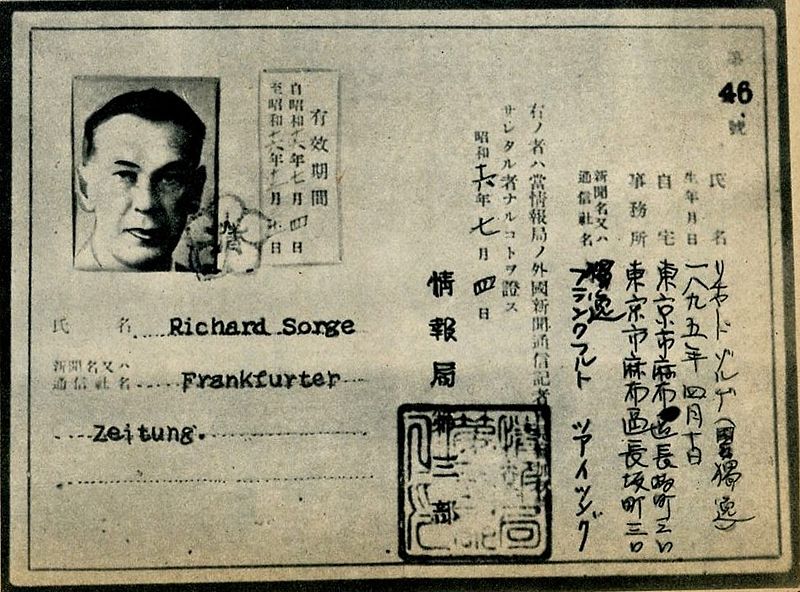 第
46.
號
氏名 リチャード ゾルゲ (國 獨逸)
生年月日 一八九五年四月十日
自宅 東京市麻布區長坂町三〇
事務所 東京市麻布區長坂町三〇
新聞名又ハ
通信社名 獨逸
フランクフルト ツアイツング
右ノ者ハ當情報局ノ外國新聞通信記者
サレタル者ナルコトヲ證ス
昭和十六年七月四日
情報局第三部
有效期間
自昭和十六年七月四日
至昭和十六年 月 日
氏名 Richard Sorge
新聞名又ハ
通信社名 Frankfurter
Zeitung.